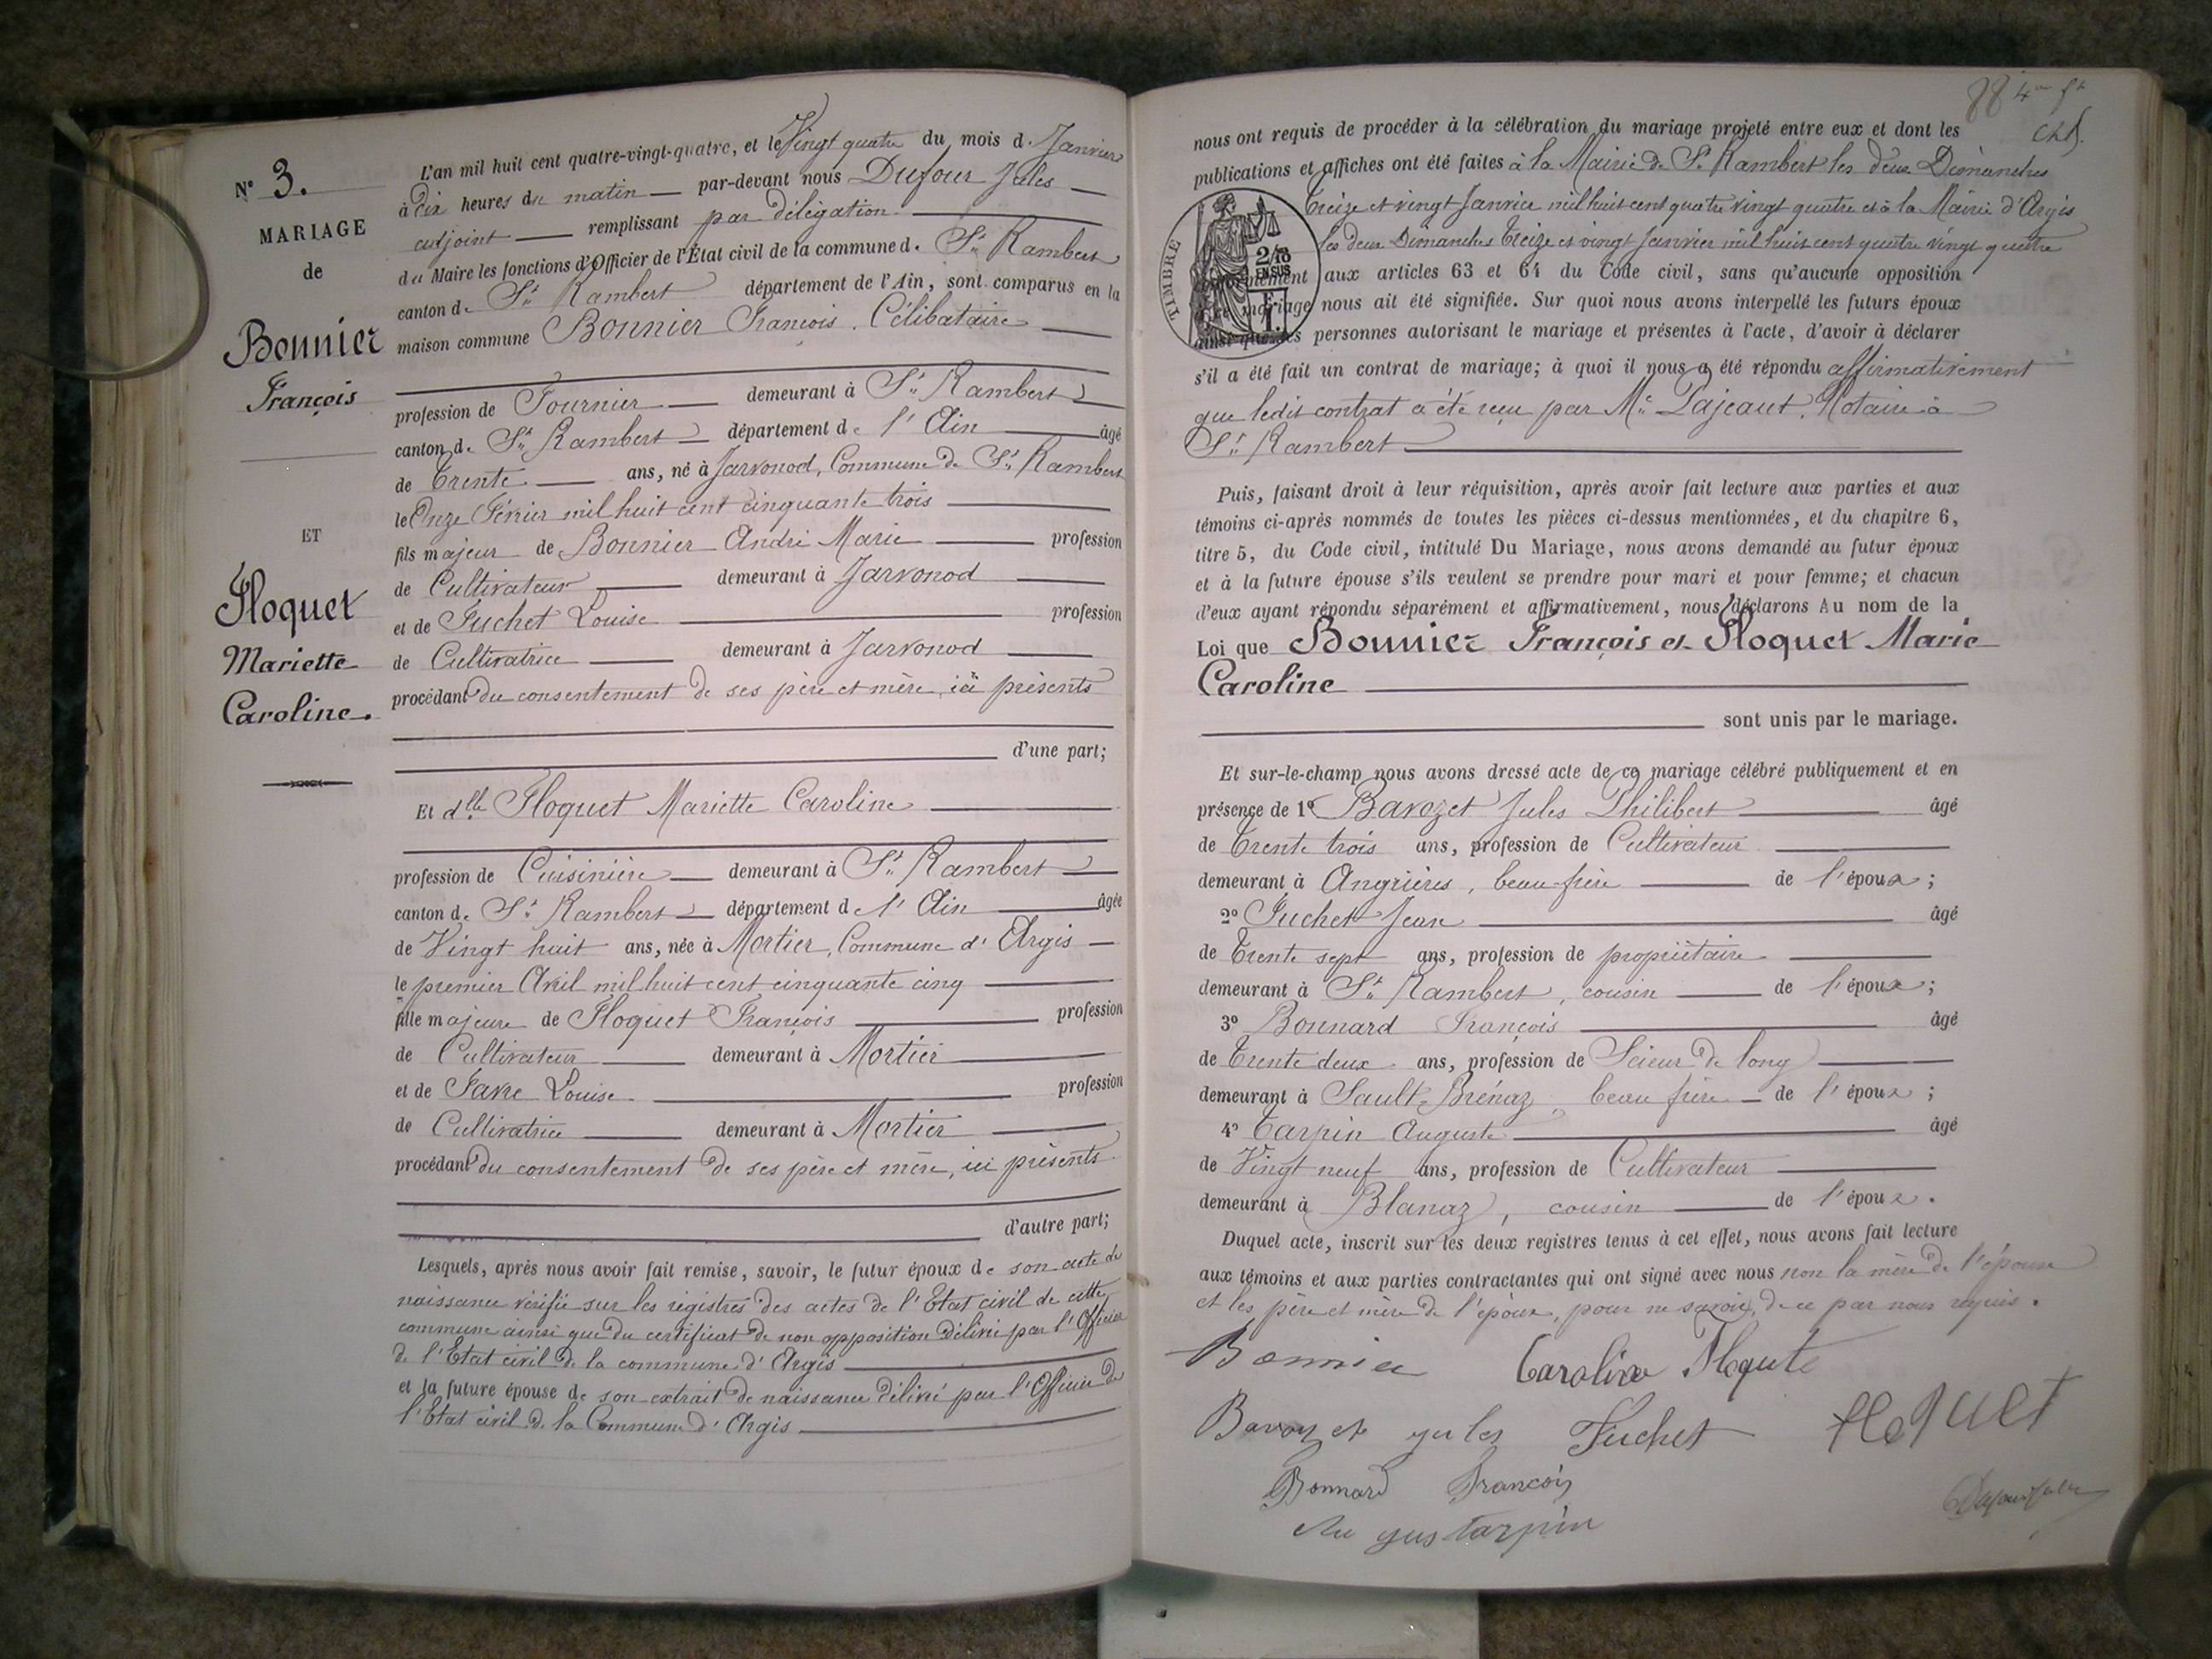 N° 3.
MARIAGE
de
Bonnier
François
ET
Floquet
Mariette
Caroline.
L'an mil huit cent quatre-vingt-quatre, et le Vingt quatre du mois de Janvier
à Dix heures du matin par-devant nous Dufour Jules
adjoint remplissant par délégation
du Maire les fonctions d'Officier de l'État civil de la commune de St Rambert
canton de St Rambert département de l'Ain, sont comparus en la
maison commune Bonnier François. Célibataire
profession de Fournier demeurant à St Rambert
canton de St Rambert département de l'Ain âgé
de Trente ans, né à Jarvonod, Commune de St Rambert
le Onze Février mil huit cent cinquante trois
fils majeur de Bonnier André Marie profession
de Cultivateur demeurant à Jarvonod
et de Juchet Louise profession
de Cultivatrice demeurant à Jarvonod
procédant du consentement de ses père et mère, ici présents
d'une part;
Et dlle Floquet Mariette Caroline
profession de Cuisinière demeurant à St Rambert
canton de St Rambert département de l'Ain âgée
de Vingt huit ans, née à Mortier, Commune d'Argis
le premier Avril mil huit cent cinquante cinq
fille majeure de Floquet François profession
de Cultivateur demeurant à Mortier
et de Favre Louise profession
de Cultivatrice demeurant à Mortier
procédant du consentement de ses père et mère, ici présents
d'autre part;
Lesquels, après nous avoir fait remise, savoir, le futur époux de son acte de
naissance vérifié sur les régistres des actes de l'Etat civil de cette
commune ainsi que du certificat de non opposition délivré par l'Officier
de l'Etat civil de la commune d'Argis
et la future épouse de son extrait de naissance délivré par l'Officier de
l'Etat civil de la Commune d'Argis
88 4me ft
nous ont requis de procéder à la célébration du mariage projeté entre eux et dont les
publications et affiches ont été faites à la Mairie de St Rambert les deux Dimanches
Treize et vingt Janvier mil huit cent quatre vingt quatre et à la Mairie d'Argis
les deux Dimanches Treize et vingt Janvier mil huit cent quatre vingt quatre
TIMBRE
2/10
EN SUS
1 F.
conformément aux articles 63 et 64 du Code civil, sans qu'aucune opposition
à ce mariage nous ait été signifiée. Sur quoi nous avons interpellé les futurs époux
ainsi que les personnes autorisant le mariage et présentes à l'acte, d'avoir à déclarer
s'il a été fait un contrat de mariage; à quoi il nous a été répondu affirmativement
que ledit contrat a été reçu par Me Pajeaut, Notaire à
St Rambert
Puis, faisant droit à leur réquisition, après avoir fait lecture aux parties et aux
témoins ci-après nommés de toutes les pièces ci-dessus mentionnées, et du chapitre 6,
titre 5, du Code civil, intitulé Du Mariage, nous avons demandé au futur époux
et à la future épouse s'ils veulent se prendre pour mari et pour femme; et chacun
d'eux ayant répondu séparément et affirmativement, nous déclarons Au nom de la
Loi que Bonnier François et Floquet Marie
Caroline
sont unis par le mariage.
Et sur-le-champ nous avons dressé acte de ce mariage célébré publiquement et en
présence de 1° Bavozet Jules Philibert âgé
de Trente trois ans, profession de Cultivateur
demeurant à Angrières, beau-frère de l'époux;
2° Juchet Jean âgé
de Trente sept ans, profession de propriétaire
demeurant à St Rambert, cousin de l'époux;
3° Bonnard François âgé
de Trente deux ans, profession de Scieur de long
demeurant à Sault-Brénaz, beau frère de l'époux;
4° Tarpin Auguste âgé
de Vingt neuf ans, profession de Cultivateur
demeurant à Blanaz, cousin de l'époux.
Duquel acte, inscrit sur les deux registres tenus à cet effet, nous avons fait lecture
aux témoins et aux parties contractantes qui ont signé avec nous non la mère de l'épouse
et les père et mère de l'époux, pour ne savoir, de ce par nous requis.
Bonnier Caroline Floqute
Bavozet jules Juchet floquet
Bonnard François
Augus tarpin